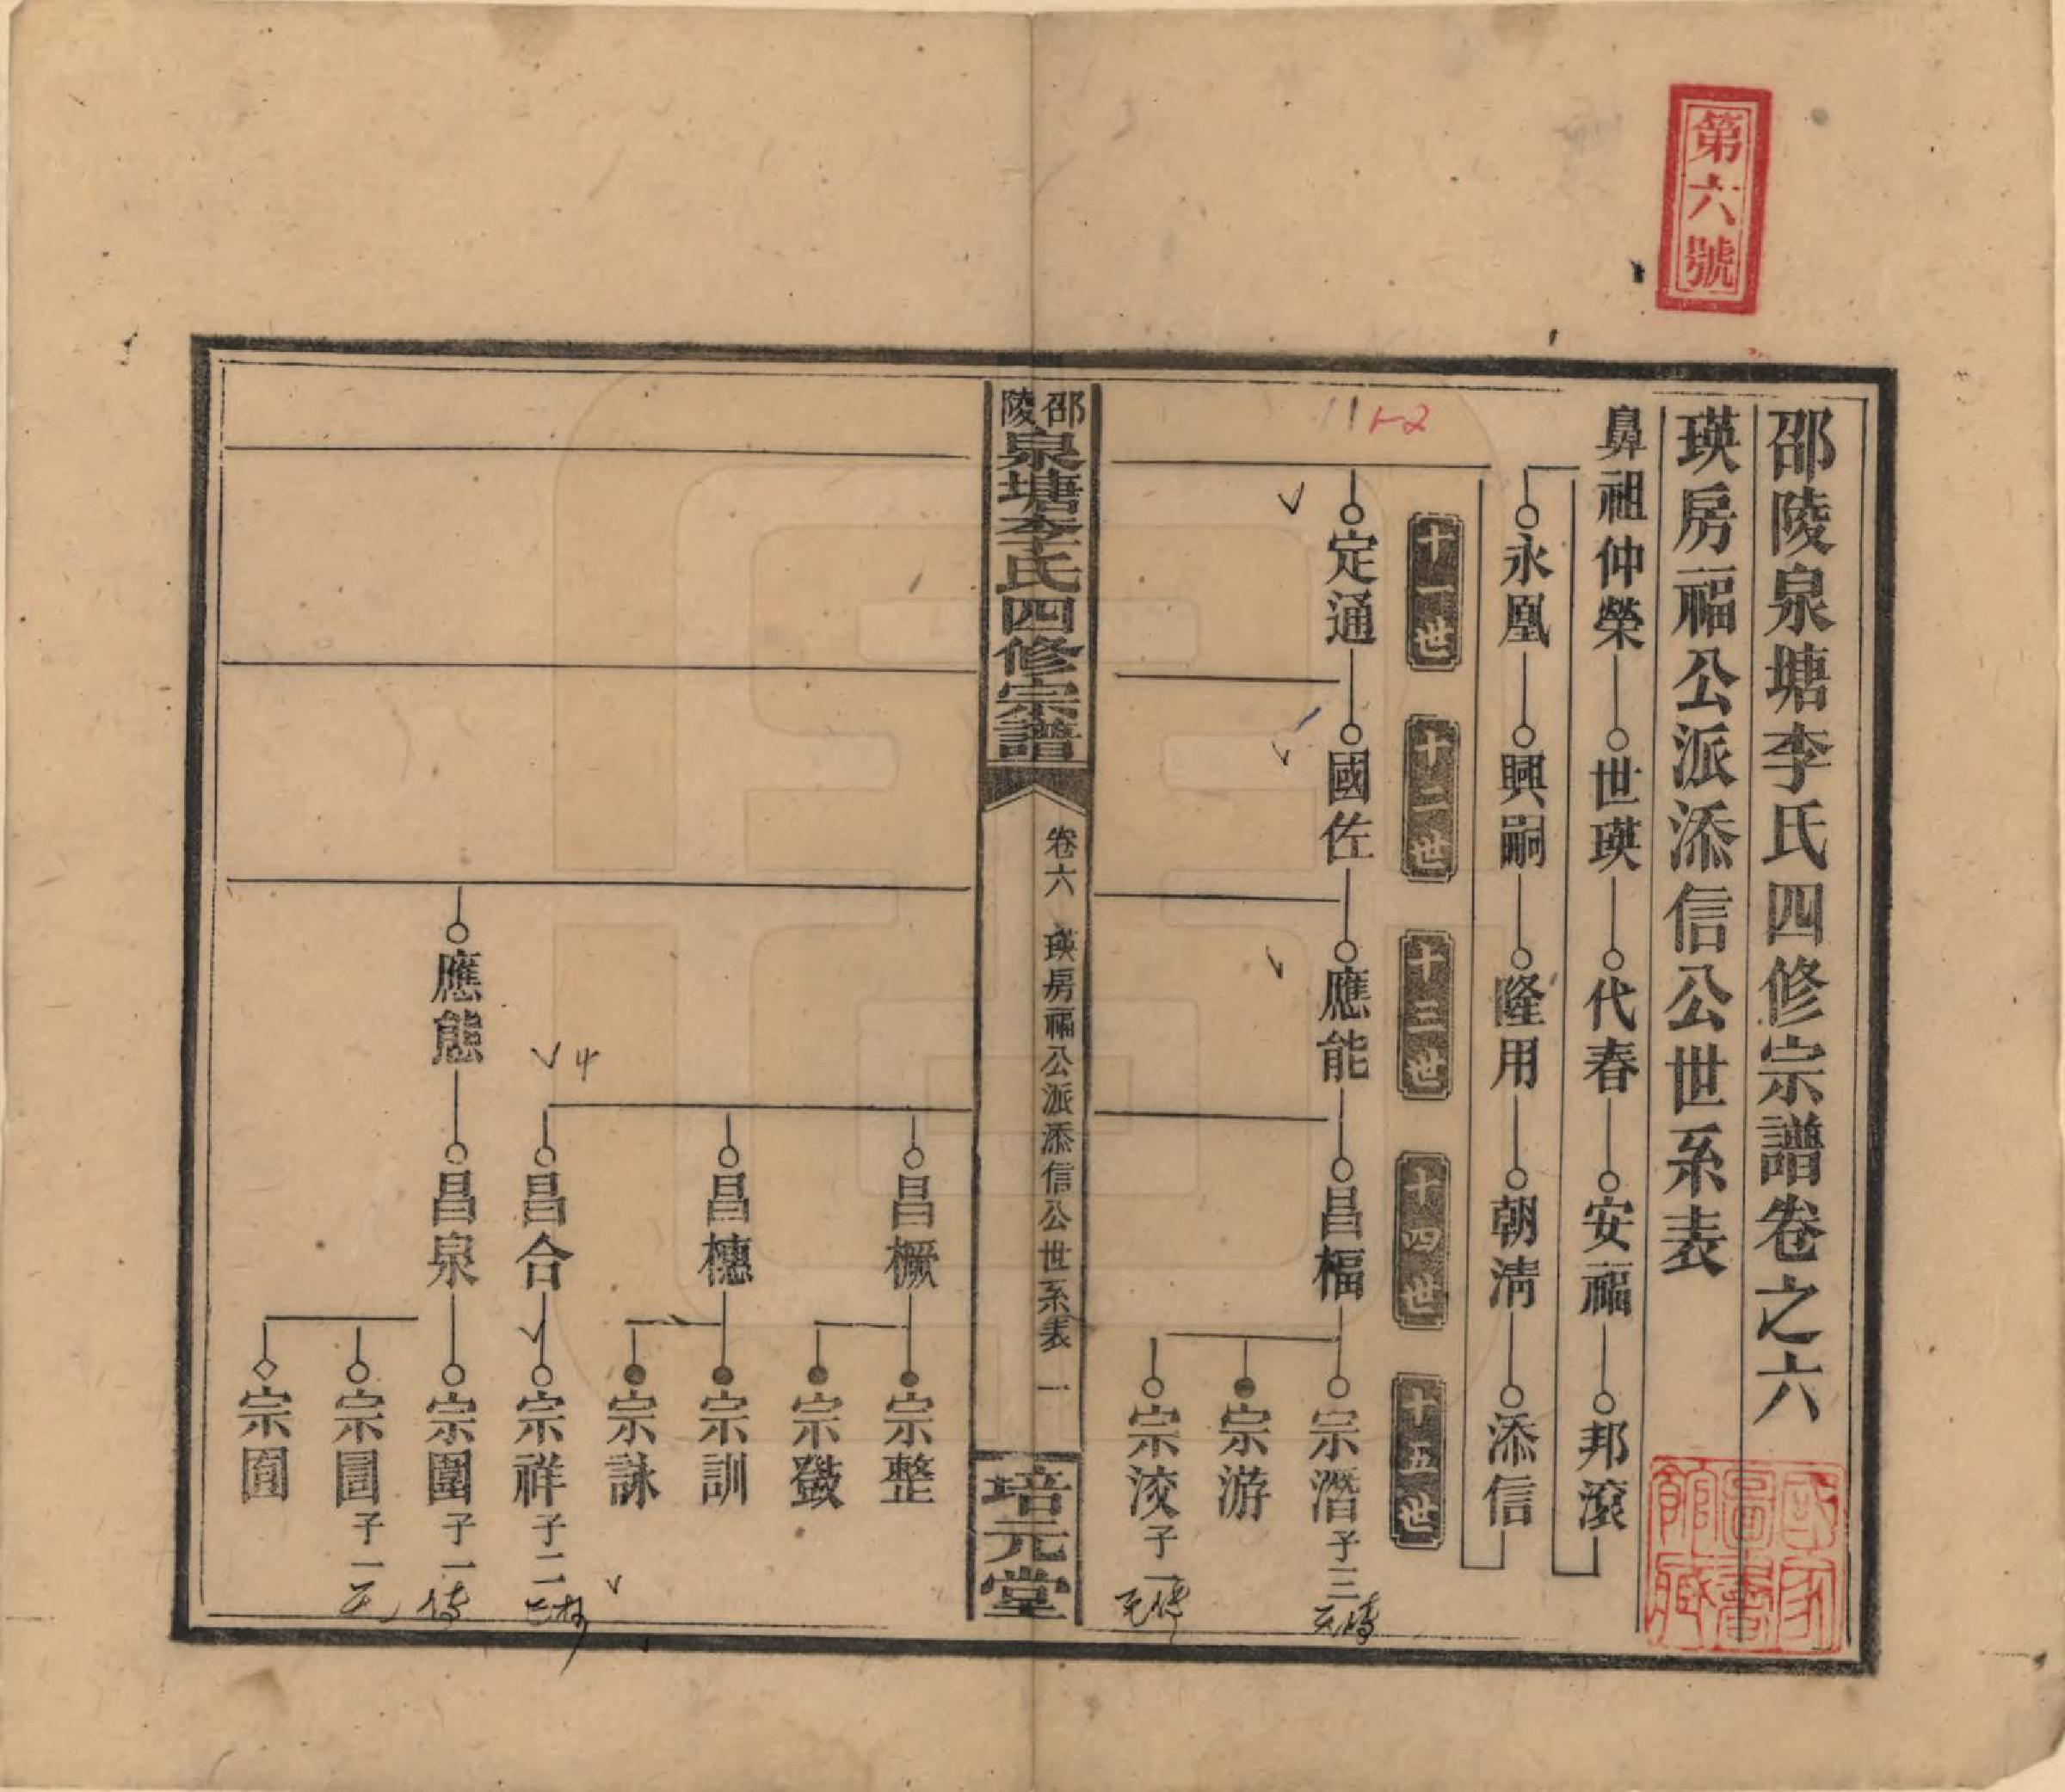 第六號
邵陵泉塘李氏四修宗譜卷之六
瑛房福公派添信公世系表
鼻祖仲榮 世瑛 代春 安福 邦滾
永凰 興嗣 隆用 朝淸 添信
十一世 十二世 十三世 十四世 十五世
定通 國佐 應能 昌楅 宗潛 子三
宗游
宗淩 子一
邵陵泉塘李氏四修宗譜 卷六 瑛房福公派添信公世系表 一 培元堂
昌橛 宗整
宗鼓
昌櫶 宗訓
宗詠
昌合 宗祥 子二
應態 昌泉 宗圍 子一
宗圁 子一
宗圎
國家圖書館藏